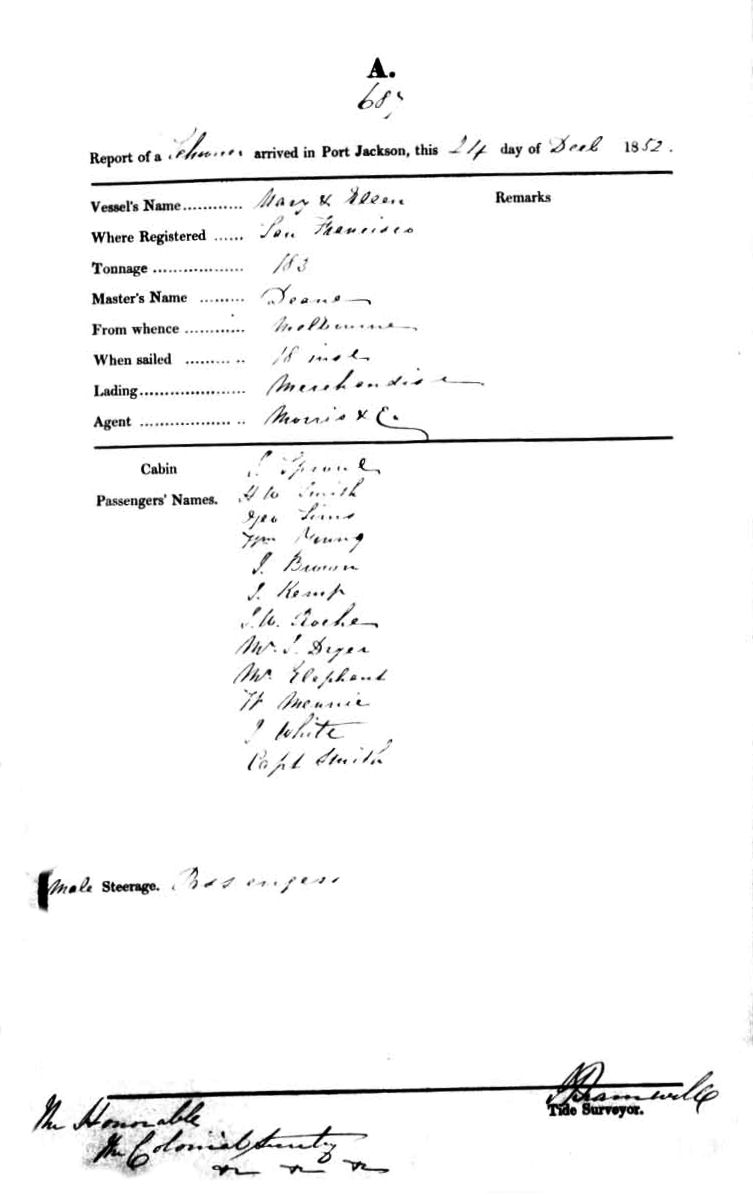 A.
687
Report of a Schooner arrived in Port Jackson, this 24 day of Decb 1852.
Vessel's Name............ Mary & Ellen Remarks
Where Registered ...... San Francisco
Tonnage .................. 183
Master's Name ......... Deane
From whence ............ Melbourne
When sailed ......... .. 18 inst
Lading..................... Merchandise
Agent .................. .. Morris & Co
Cabin
Passengers' Names.
J. 
H W Smith
Geo Sims
Wm Young
J. Brown
J. Kemp
J. W. Roche
Mr. J. Dyer
Mr. Elephant
W Mennie
J White
Capt Smith
Male Steerage. Passengers
J Bramwell
Tide Surveyor.
The Honorable
The Colonial Secrety